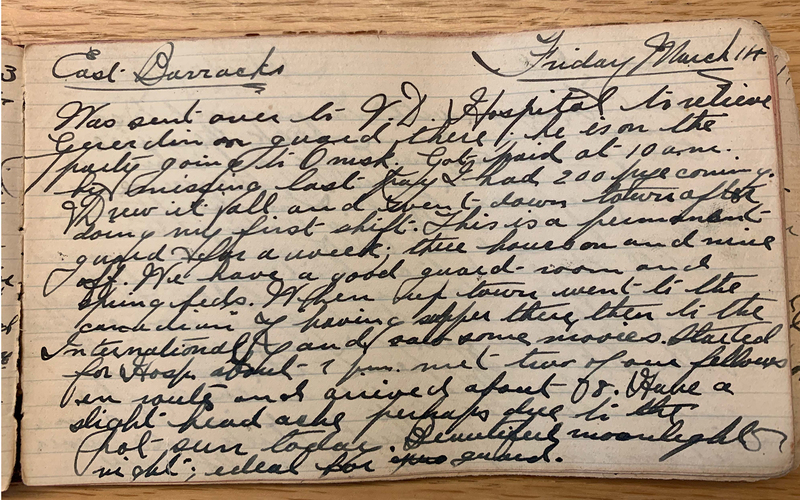 East Barracks Friday March 14
Was sent over to V.D. Hospital to relieve
Gererdin on guard there; he is on the
party going to Omsk. Got paid at 10 a.m.
by missing last pay I had 200 rye coming.
Drew it all and went down town after
doing my first shift. This is a permanent
guard for a week; three hours on and nine
off. We have a good guard-room and
spring beds. When up town went to the
Canadian Y having supper there then to the
International Y and saw some movies. Started
for Hosp. about 7 p.m. met two of our fellows
en route and arrived about 8. Have a
slight head ache perhaps due to the
hot sun today. Beautiful moonlight
night; ideal for guard.